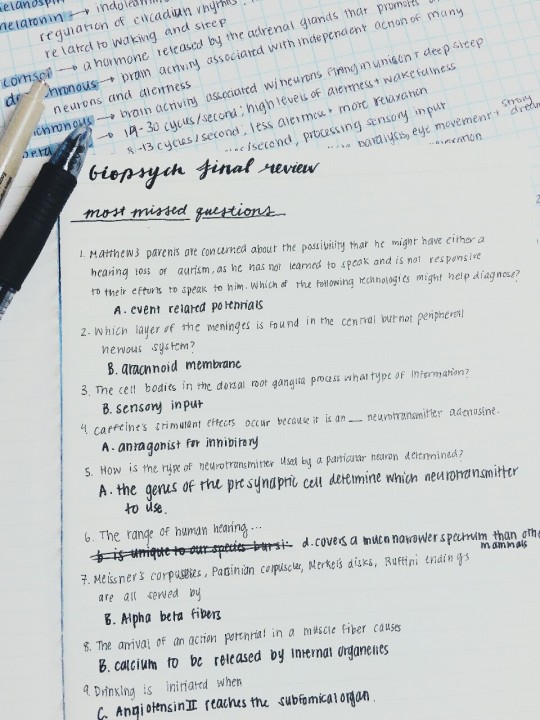 melatonin → indolam
regulation of circadian rhythms
related to waking and sleep
cortisol → a hormone released by the adrenal glands that promotes
chronous → brain activity associated with independent action of many
neurons and alertness
nchronous → brain activity associated w/neurons firing in unison + deep sleep
beta → 14-30 cycles/second; high levels of alertness + wakefulness
8-13 cycles/second, less alertness + more relaxation
/second, processing sensory input
paralysis, eye movement + strong
biopsych final review
most missed questions
1. Matthew's parents are concerned about the possibility that he might have either a
hearing loss or autism, as he has not learned to speak and is not responsive
to their efforts to speak to him. Which of the following technologies might help diagnose?
A. event related potentials
2. Which layer of the meninges is found in the central but not peripheral
nervous system?
B. arachnoid membrane
3. The cell bodies in the dorsal root ganglia process what type of information?
B. sensory input
4. Caffeine's stimulant effects occur because it is an __ neurotransmitter adenosine.
A. antagonist for inhibitory
5. How is the type of neurotransmitter used by a particular neuron determined?
A. the genes of the presynaptic cell determine which neurotransmitter
to use.
6. The range of human hearing...
b. is unique to our species d. covers a much narrower spectrum than othe
mammals
7. Meissner's corpuscles, Pacinian corpuscles, Merkel's disks, Ruffini endings
are all served by
B. Alpha beta fibers
8. The arrival of an action potential in a muscle fiber causes
B. calcium to be released by internal organelles
9. Drinking is initiated when
C. Angiotensin II reaches the subfornical organ.